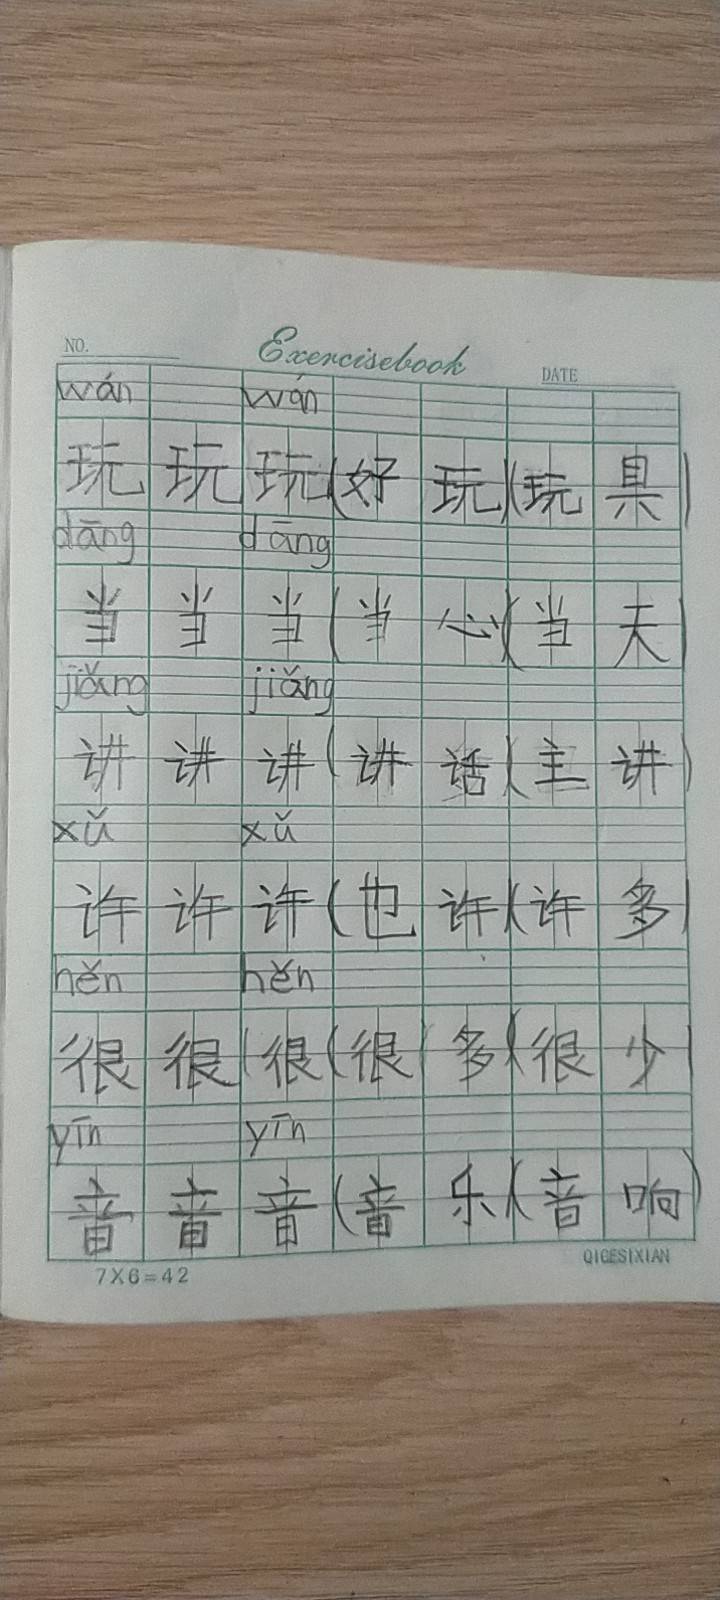 NO.
Exercisebook
DATE
wán wán
玩 玩 玩 (好 玩)(玩 具)
dāng dāng
当 当 当 (当 心)(当 天)
jiǎng jiǎng
讲 讲 讲 (讲 话)(主 讲)
xǔ xǔ
许 许 许 (也 许)(许 多)
hěn hěn
很 很 很 (很 多)(很 少)
yīn yīn
音 音 音 (音 乐)(音 响)
7X6=42
QIGESIXIAN